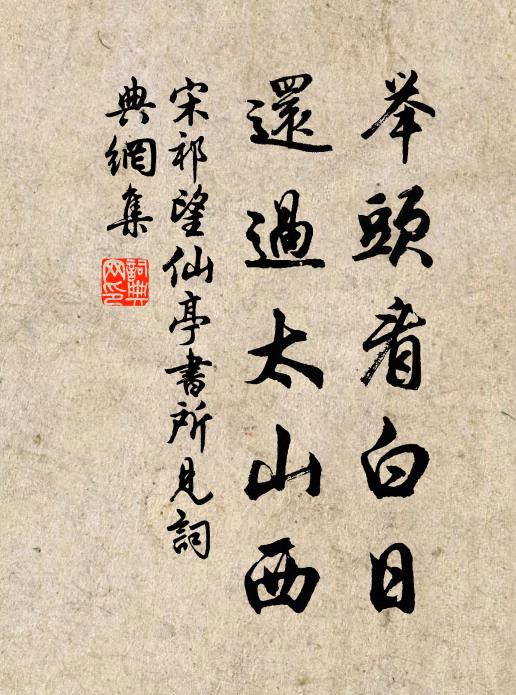 举頭看白日
還過太山西
宋祁望仙亭書所見詞
典網集
詞典
网印